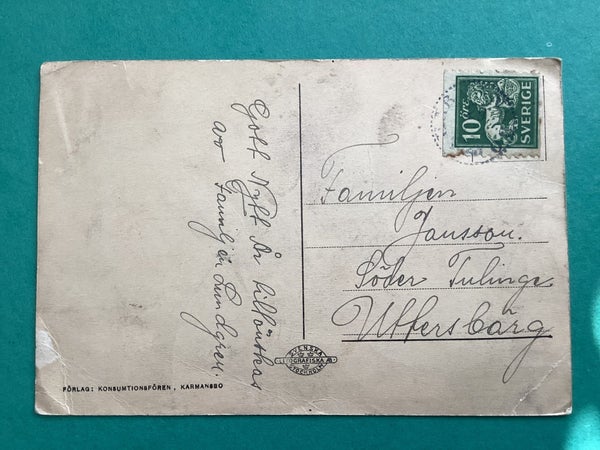 Gott Nytt År tillönskas
av Familjen Lundgren.
FÖRLAG: KONSUMTIONSFÖREN , KARMANSBO
SVENSKA
LITOGRAFISKA AB
STOCKHOLM
10 öre
SVERIGE
Familjen
Jansson.
Söder Tulinge
Uttersbärg